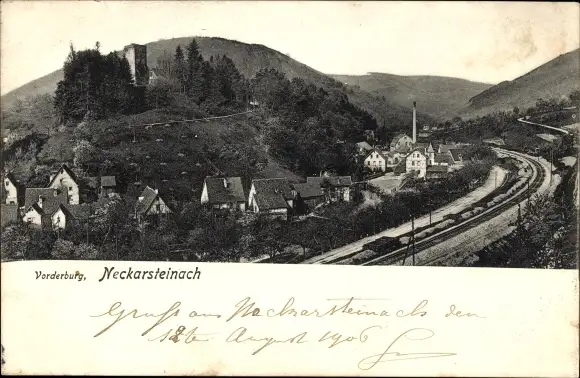 Vorderburg, Neckarsteinach
Gruss aus Neckarsteinach den
12te August 1906